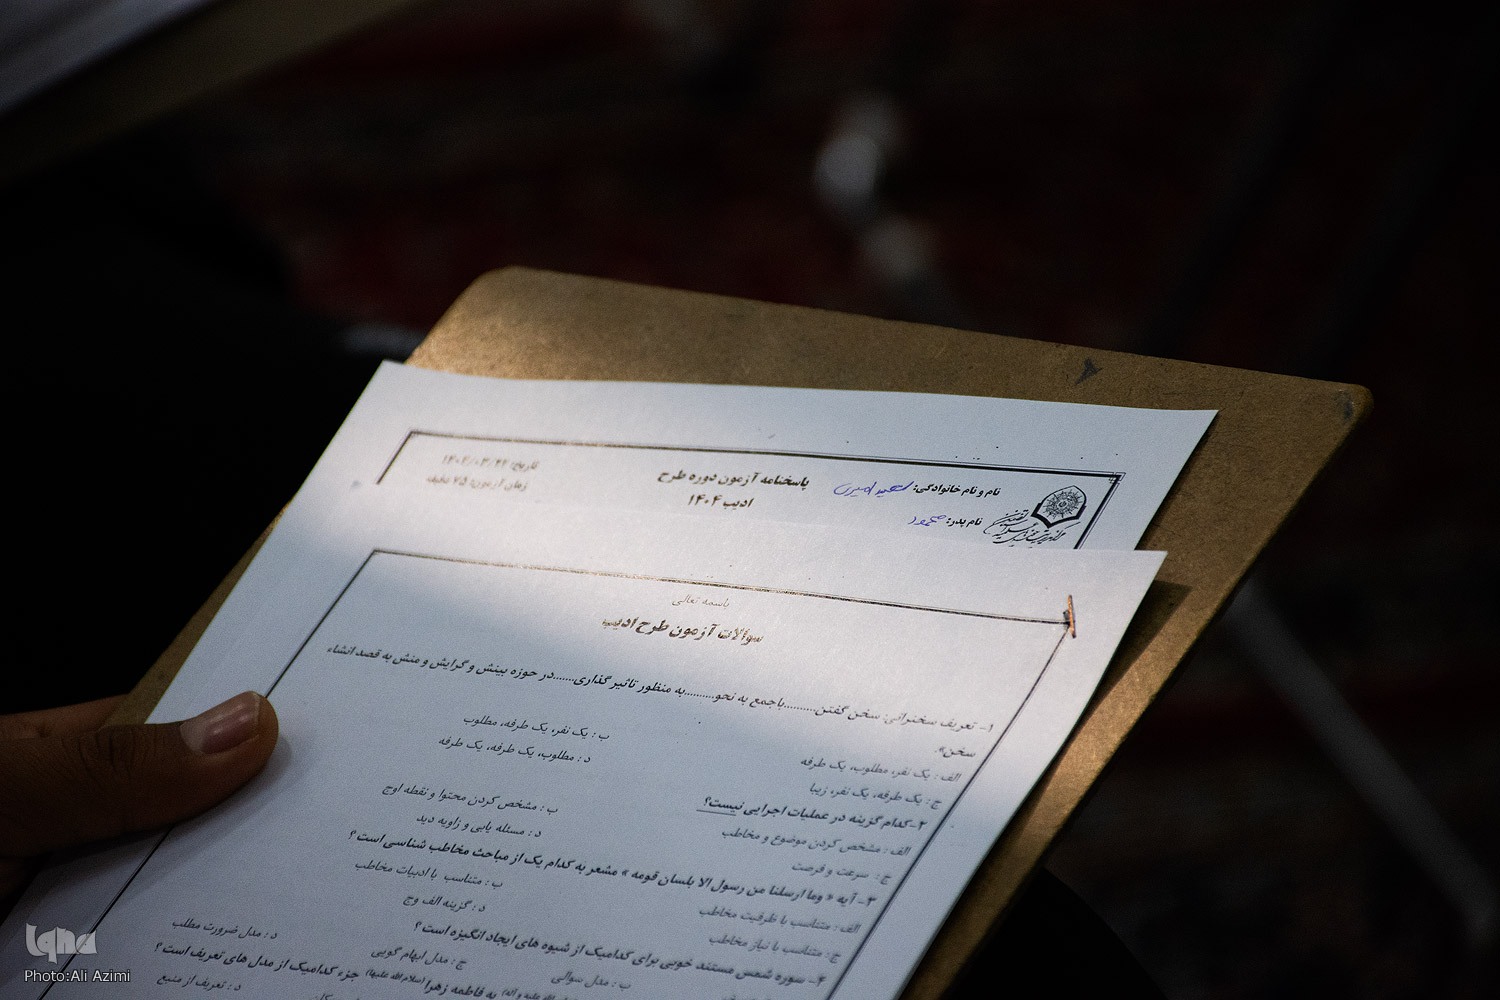 نام و نام خانوادگی: سعید امیری
پاسخنامه آزمون دوره طرح
نام پدر: محمود
ادیب ۱۴۰۴
زمان آزمون: ۷۵ دقیقه
باسمه تعالی
سوالات آزمون طرح ادیب
۱- تعریف سخنرانی: سخن گفتن..........با جمع به نحو..........به منظور تاثیر گذاری.......در حوزه بینش و گرایش و منش به قصد انشاء
سخن».
الف : یک نفر، مطلوب، یک طرفه
ب : یک نفر، یک طرفه، مطلوب
ج : یک طرفه، یک نفر، زیبا
د : مطلوب، یک طرفه، یک طرفه
۲-کدام گزینه در عملیات اجرایی نیست؟
الف : مشخص کردن موضوع و مخاطب
ب : مشخص کردن محتوا و نقطه اوج
ج : سرعت و فرصت
د : مسئله یابی و زاویه دید
۳- آیه « وما ارسلنا من رسول الا بلسان قومه » مشعر به کدام یک از مباحث مخاطب شناسی است ؟
الف : متناسب با ظرفیت مخاطب
ب : متناسب با ادبیات مخاطب
ج : متناسب با نیاز مخاطب
د : گزینه الف وج
۴- سوره شمس مستند خوبی برای کدامیک از شیوه های ایجاد انگیزه است ؟
ب : مدل سوالی
ج : مدل ابهام گویی
د : مدل ضرورت مطلب
به فاطمه زهرا (سلام الله علیها) جزء کدامیک از مدل های تعریف است ؟
د : تعریف از منبع
iqna
Photo:Ali Azimi